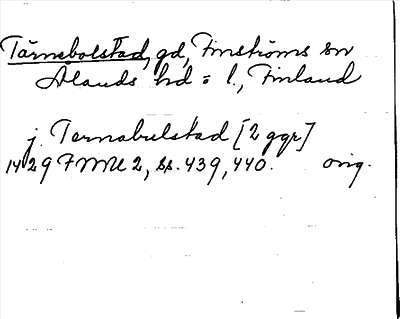 Tärnebolstad, gd, Finströms sn
Ålands hd o l., Finland
j. Ternabulstad [2 ggr]
1429 FMU 2, ss. 439, 440. orig.